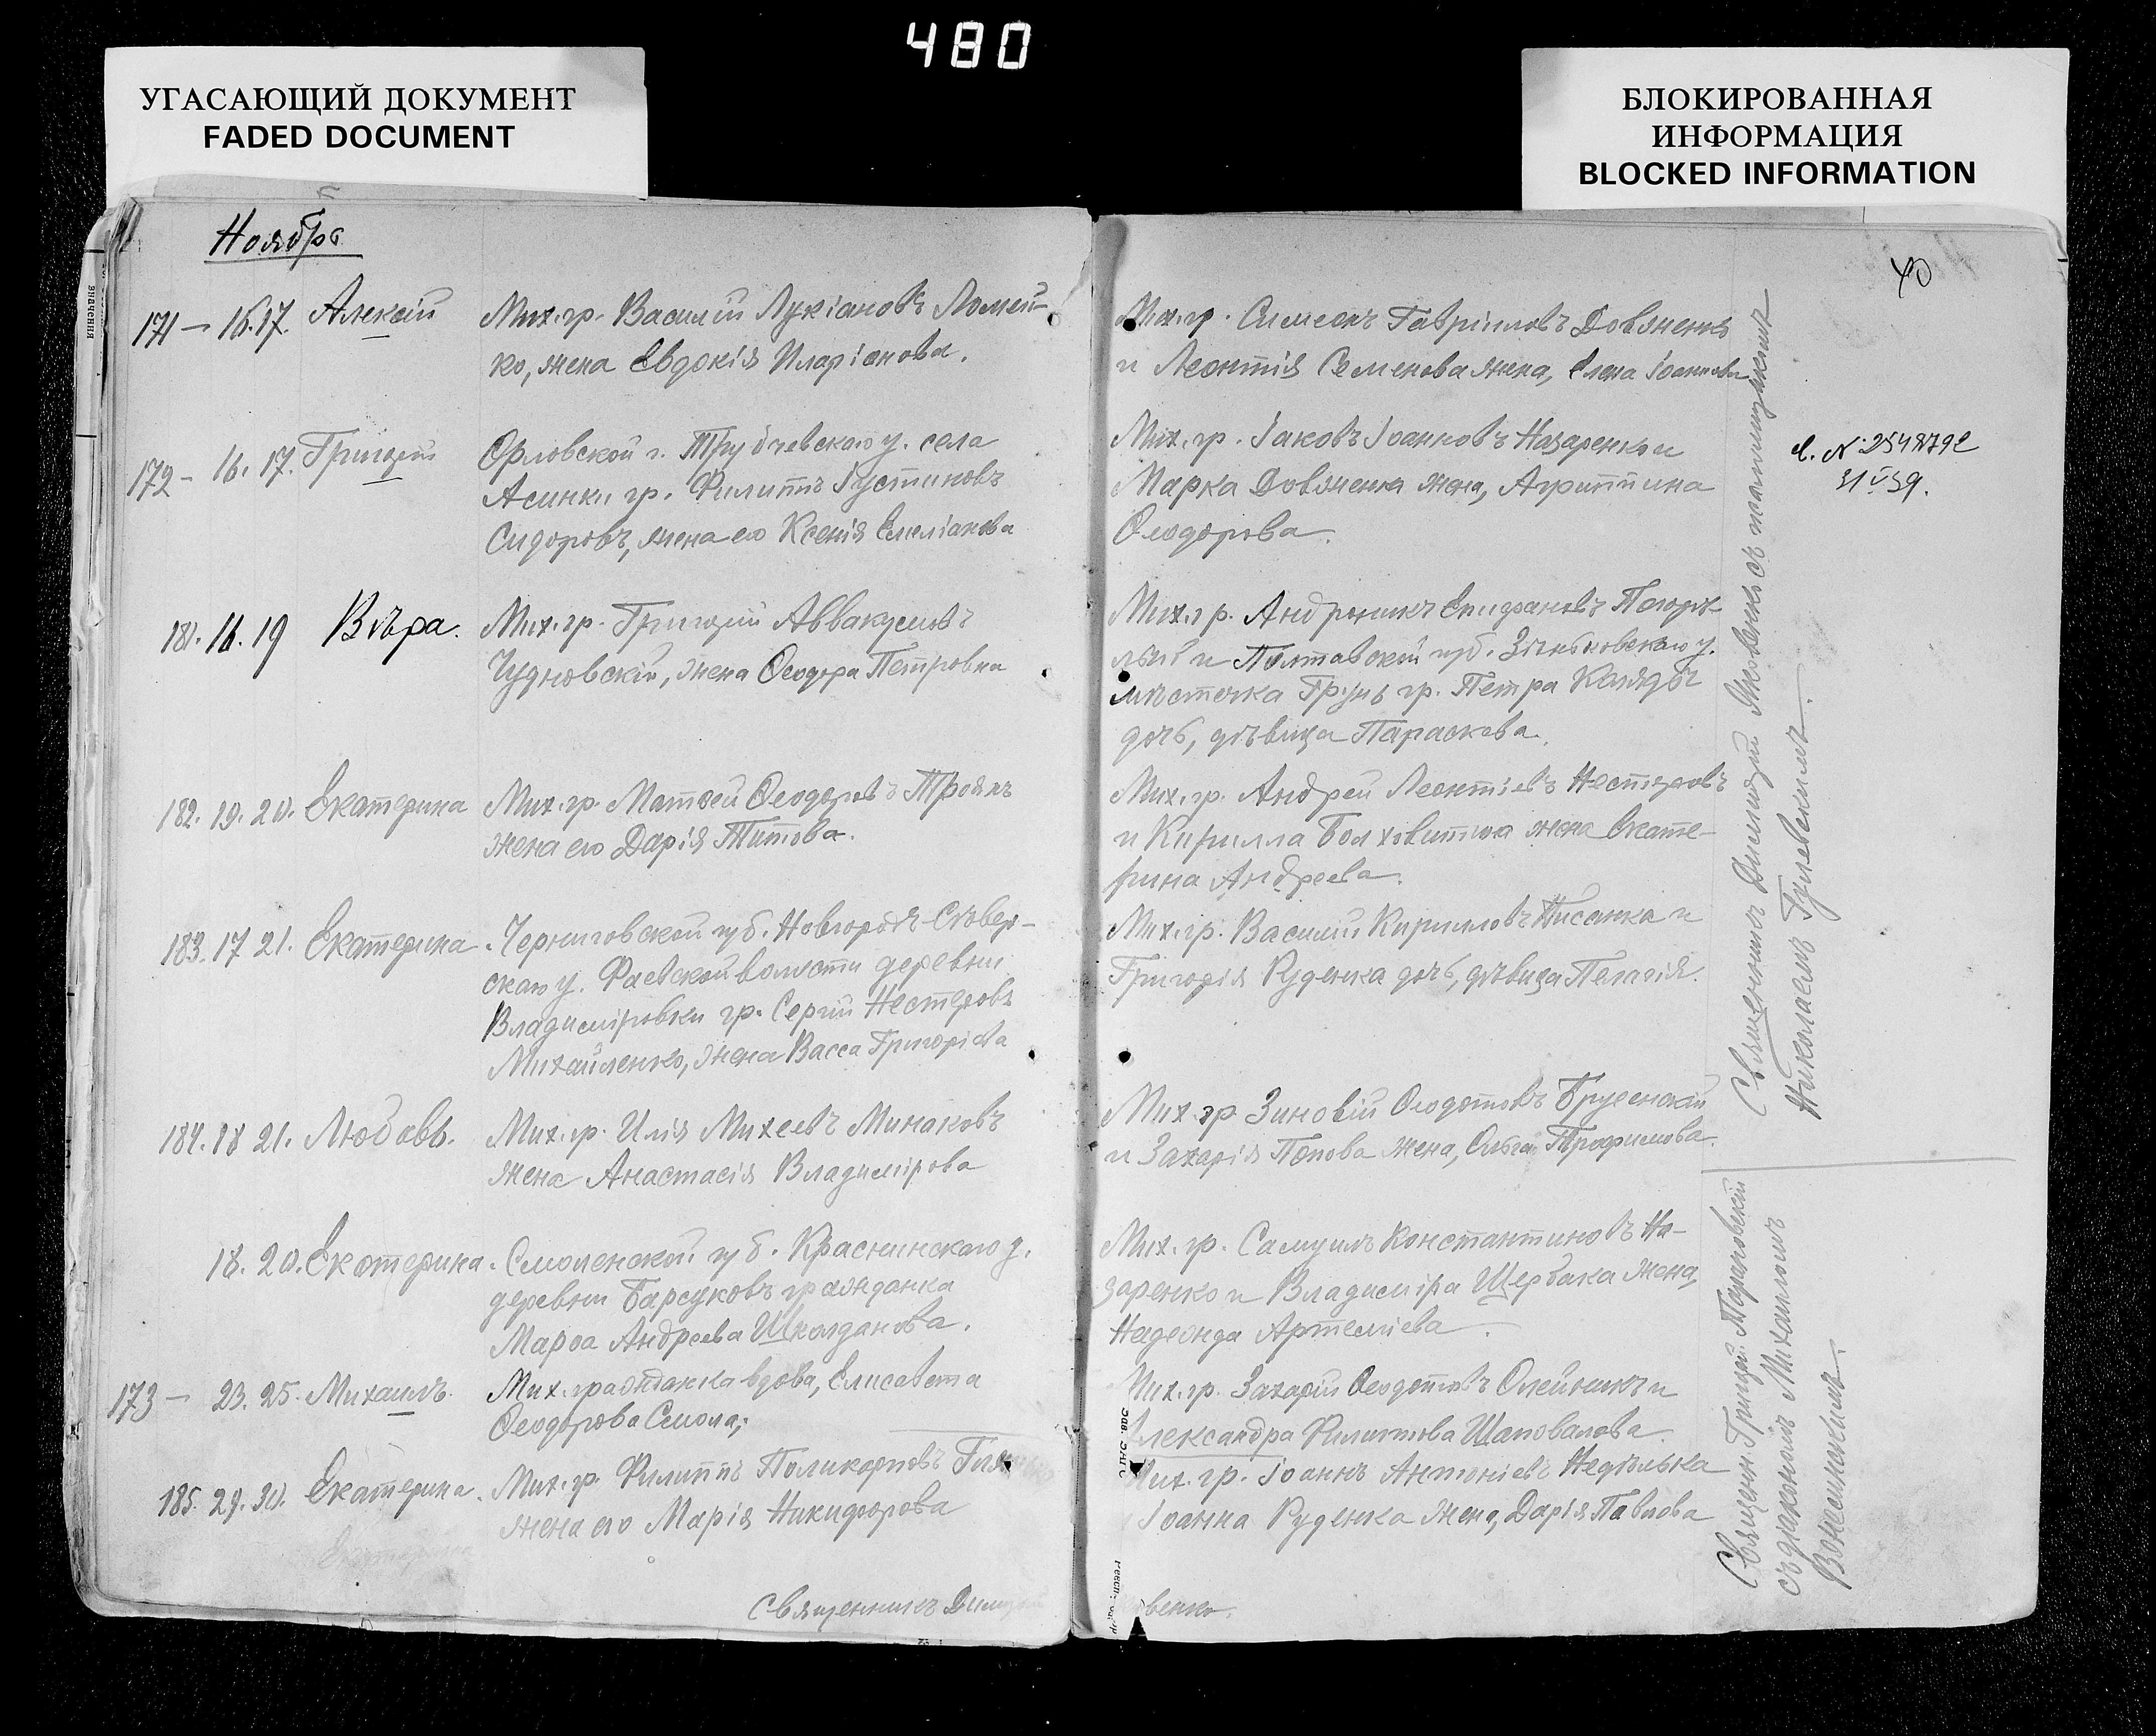 480
УГАСАЮЩИЙ ДОКУМЕНТ
FADED DOCUMENT
БЛОКИРОВАННАЯ
ИНФОРМАЦИЯ
BLOCKED INFORMATION
Ноябрь
171 — 16. 17. Алексій
Мих. гр. Василій Лукіановъ Ломей-
ко, жена Евдокія Иларіонова.
172 - 16. 17. Григорій
Орловской г. Трубчевскаго у. села
Асинки гр. Филиппъ Іустиновъ
Сидоровъ, жена его Ксенія Емеліанова
181. 16. 19 Вѣра.
Мих. гр. Григорій Аввакумовъ
Чудновскій, жена Ѳеодора Петровна
182. 19. 20. Екатерина
Мих. гр. Матѳей Ѳеодоровъ Троянъ
жена его Дарія Титова.
183. 17 21. Екатерина.
Черниговской губ. Новгородъ-Сѣвер-
скаго у. волости деревни
Владиміровки гр. Сергій Нестеровъ
Михайленко, жена Васса Григоріева
184. 18 21. Любовь.
Мих. гр. Илія Михеевъ Минаковъ
жена Анастасія Владимірова
18. 20. Екатерина.
Смоленской губ. Краснинскаго у.
деревни Барсуковъ гражданка
Марѳа Андреева Школданова.
173 — 23. 25. Михаилъ.
Мих. гражданка вдова, Елисавета
Ѳеодорова Смола;
185. 29. 30. Екатерина.
Мих. гр. Филиппъ Поликарповъ
жена его Марія Никифорова
Екатерина
Священникъ Димитрій
40
Мих. гр. Симеонъ Гавріиловъ Довженко
и Леонтія Семенова жена, Елена Іоаннова
Мих. гр. Іаковъ Іоанновъ Назаренко и
Марка Довженка жена, Агриппина
Ѳеодорова.
с. № 2548792
31 V 39.
Мих. гр. Андроникъ Епифановъ Погорѣ-
лый и Полтавской губ. Зѣньковскаго у.
мѣстечка Грунь гр. Петра Каляды
дочь, дѣвица Параскева.
Мих. гр. Андрей Леонтіевъ Нестеровъ
и Кирилла Болховитина жена Екате-
рина Андреева.
Мих. гр. Василій Кирилловъ Писанка и
Григорія Руденка дочь, дѣвица Пелагія.
Мих. гр. Зиновій Ѳеодотовъ Брусенскій
и Захарія Попова жена, Ольга Трофимова.
Мих. гр. Самуилъ Константиновъ На-
заренко и Владиміра Щербака жена,
Надежда Артеміева.
Мих. гр. Захарій Ѳеодотовъ Олейникъ и
Александра Филиппова Шаповалова.
Мих. гр. Іоаннъ Антоніевъ Недѣлька
Іоанна Руденка жена, Дарія Павлова
венко.
Священникъ Димитрій Яковенко съ псаломщикомъ
Николаемъ Гулевскимъ.
Священ. Григорій
съ діакономъ Михаиломъ
Вознесенскимъ.